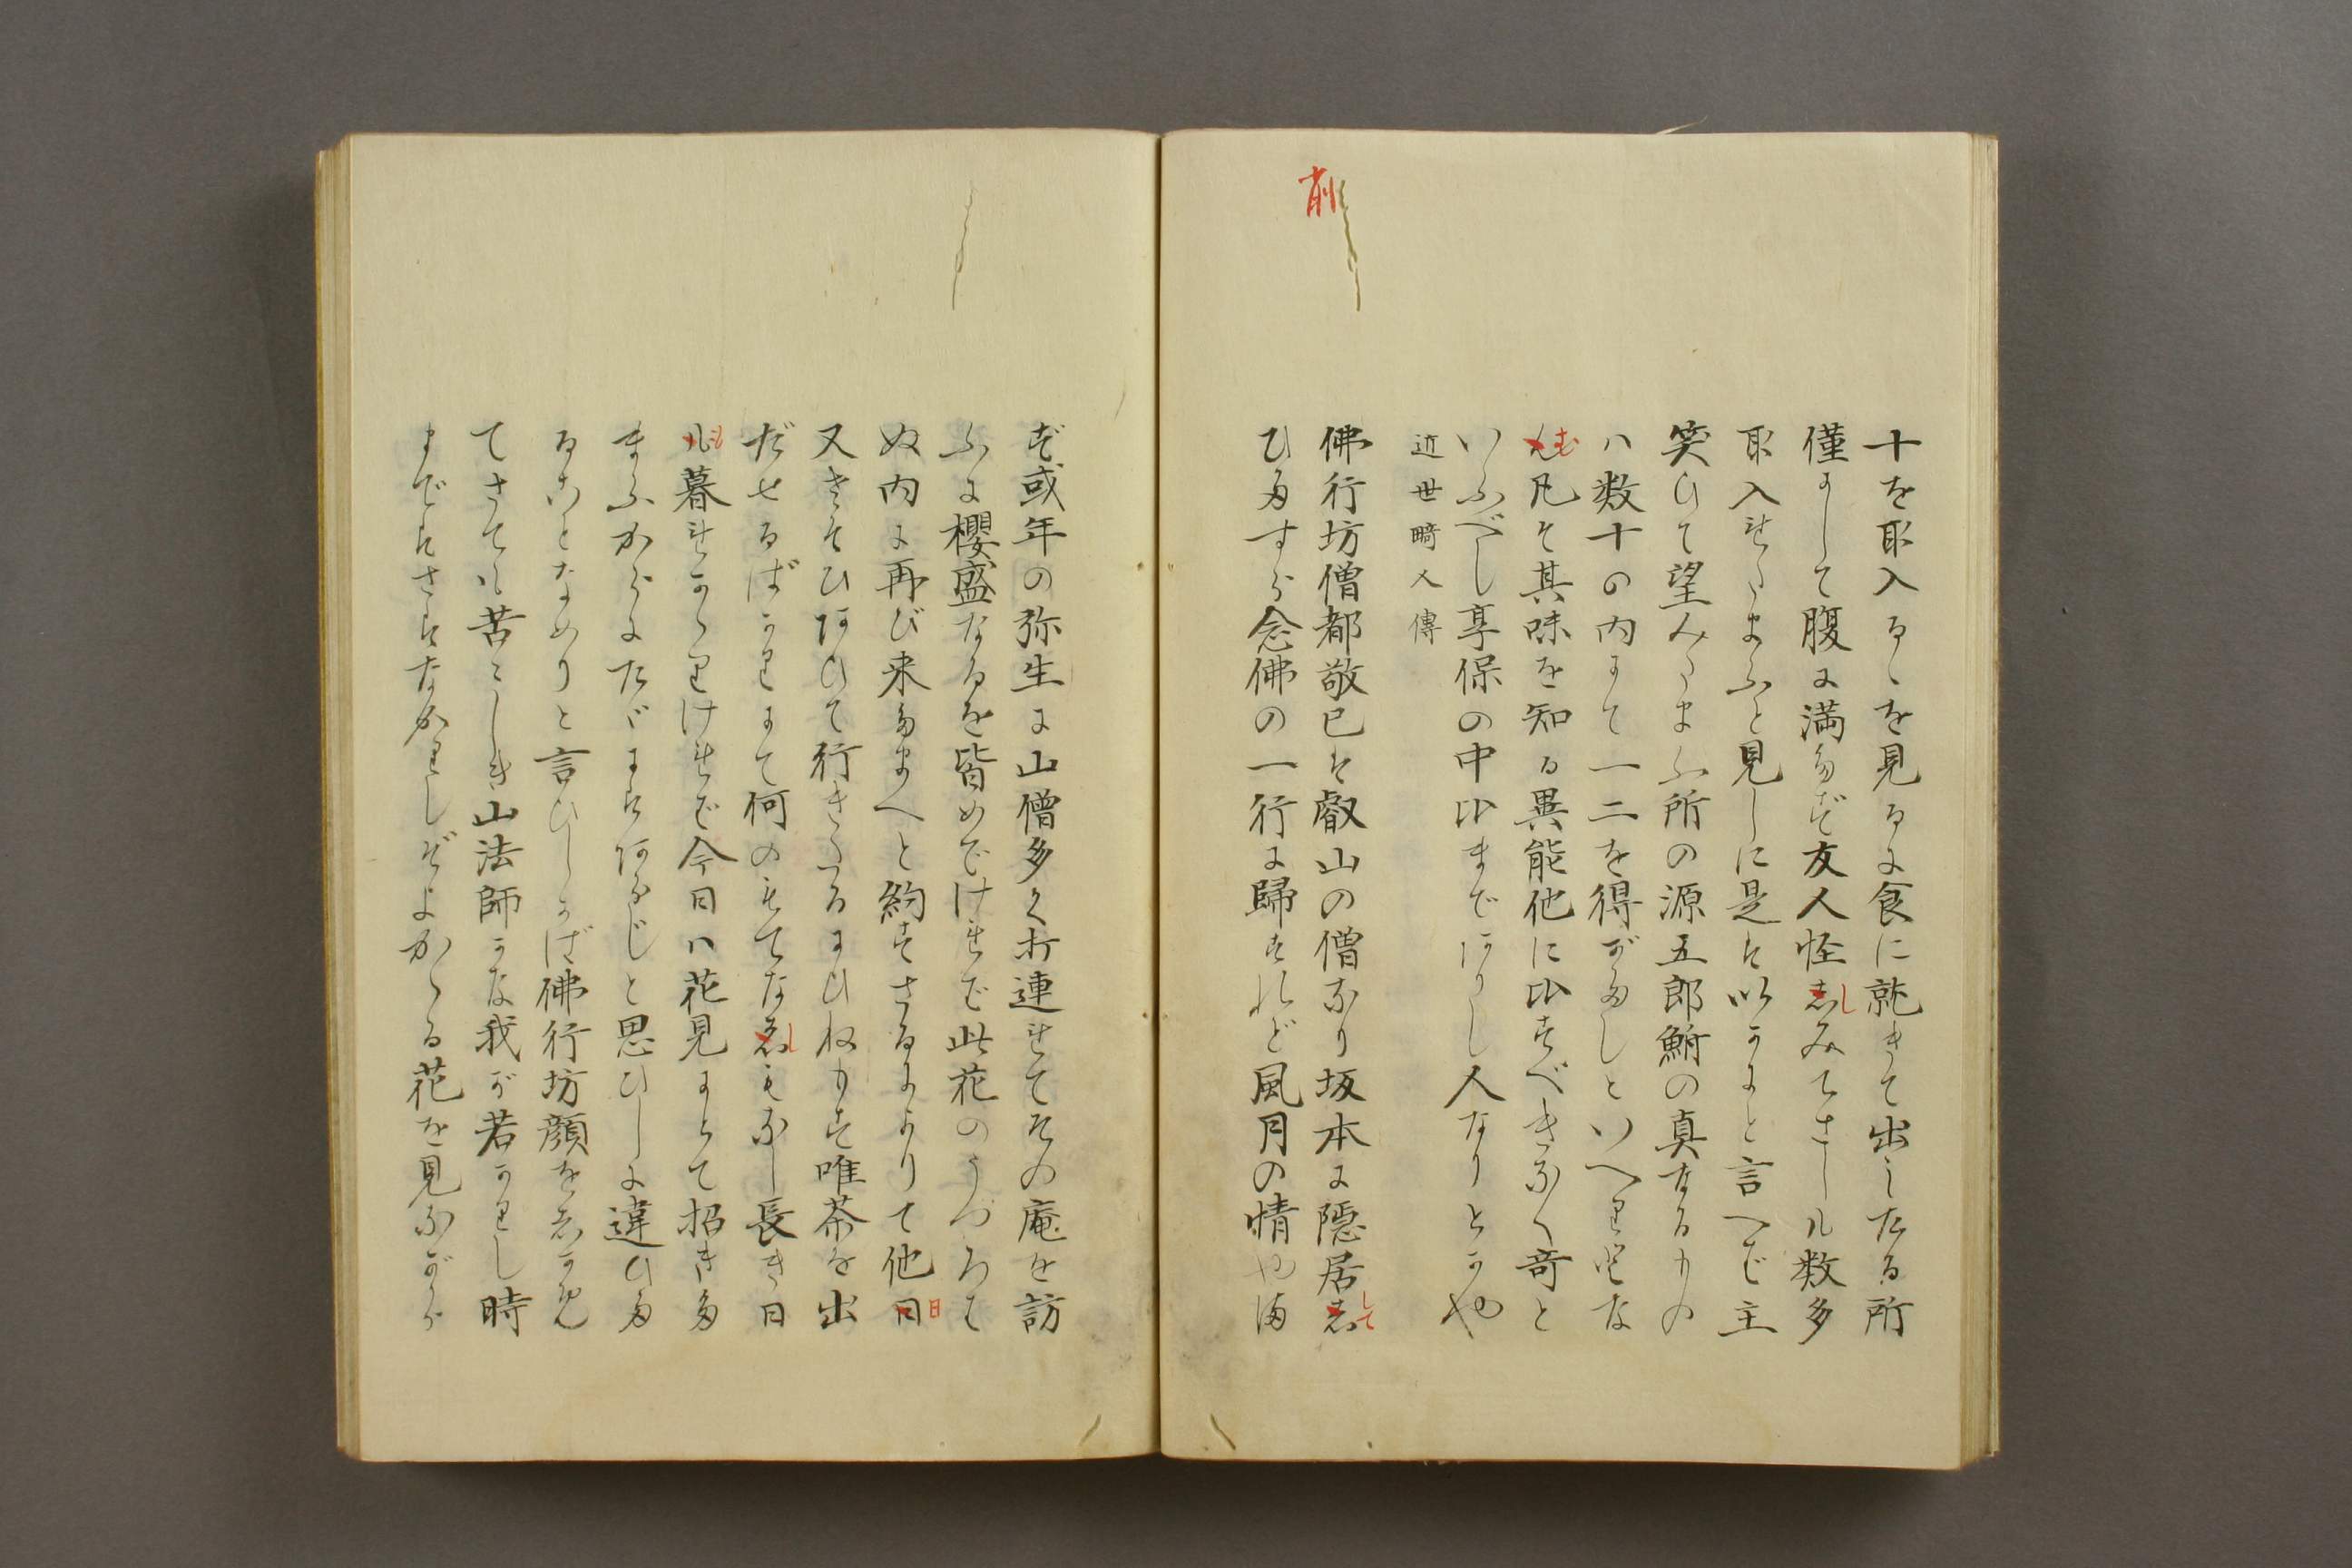 削
十を取入るゝを見るに食に就きて出したる所
僅にして腹に満たず友人怪志みてさしも数多
し
取入れたまふと見しに是は如何にと言へば主
笑ひて望みたまふ所の源五郎鮒の真なるもの
ハ数十の内にて一二を得がたしといへりとな
む凡そ其味を知る異能他に比すべきなく奇と
いふべし享保の中比までありし人なりとかや
近世畸人傳
佛行坊僧都敬已は叡山の僧なり坂本に隠居志
して
ひたすら念佛の一行に歸すれど風月の情やま
ず或年の弥生に山僧多く打連れてその庵を訪
ふに櫻盛なるを皆めでければ此花のうつろは
ぬ内に再び来たまへと約すさるによりて他日
日
又さそひあひて行きたるにひねもす唯茶を出
だせるばかりにて何のもてな志もなし長き日
し
も暮れかゝりければ今日ハ花見にとて招きた
まふからにたゞにはあらじと思ひしに違ひた
ることなめりと言ひしかば佛行坊顔を志かめ
てさても苦々しき山法師かな我が若かりし時
まではさはなかりしぞよかゝる花を見ながら